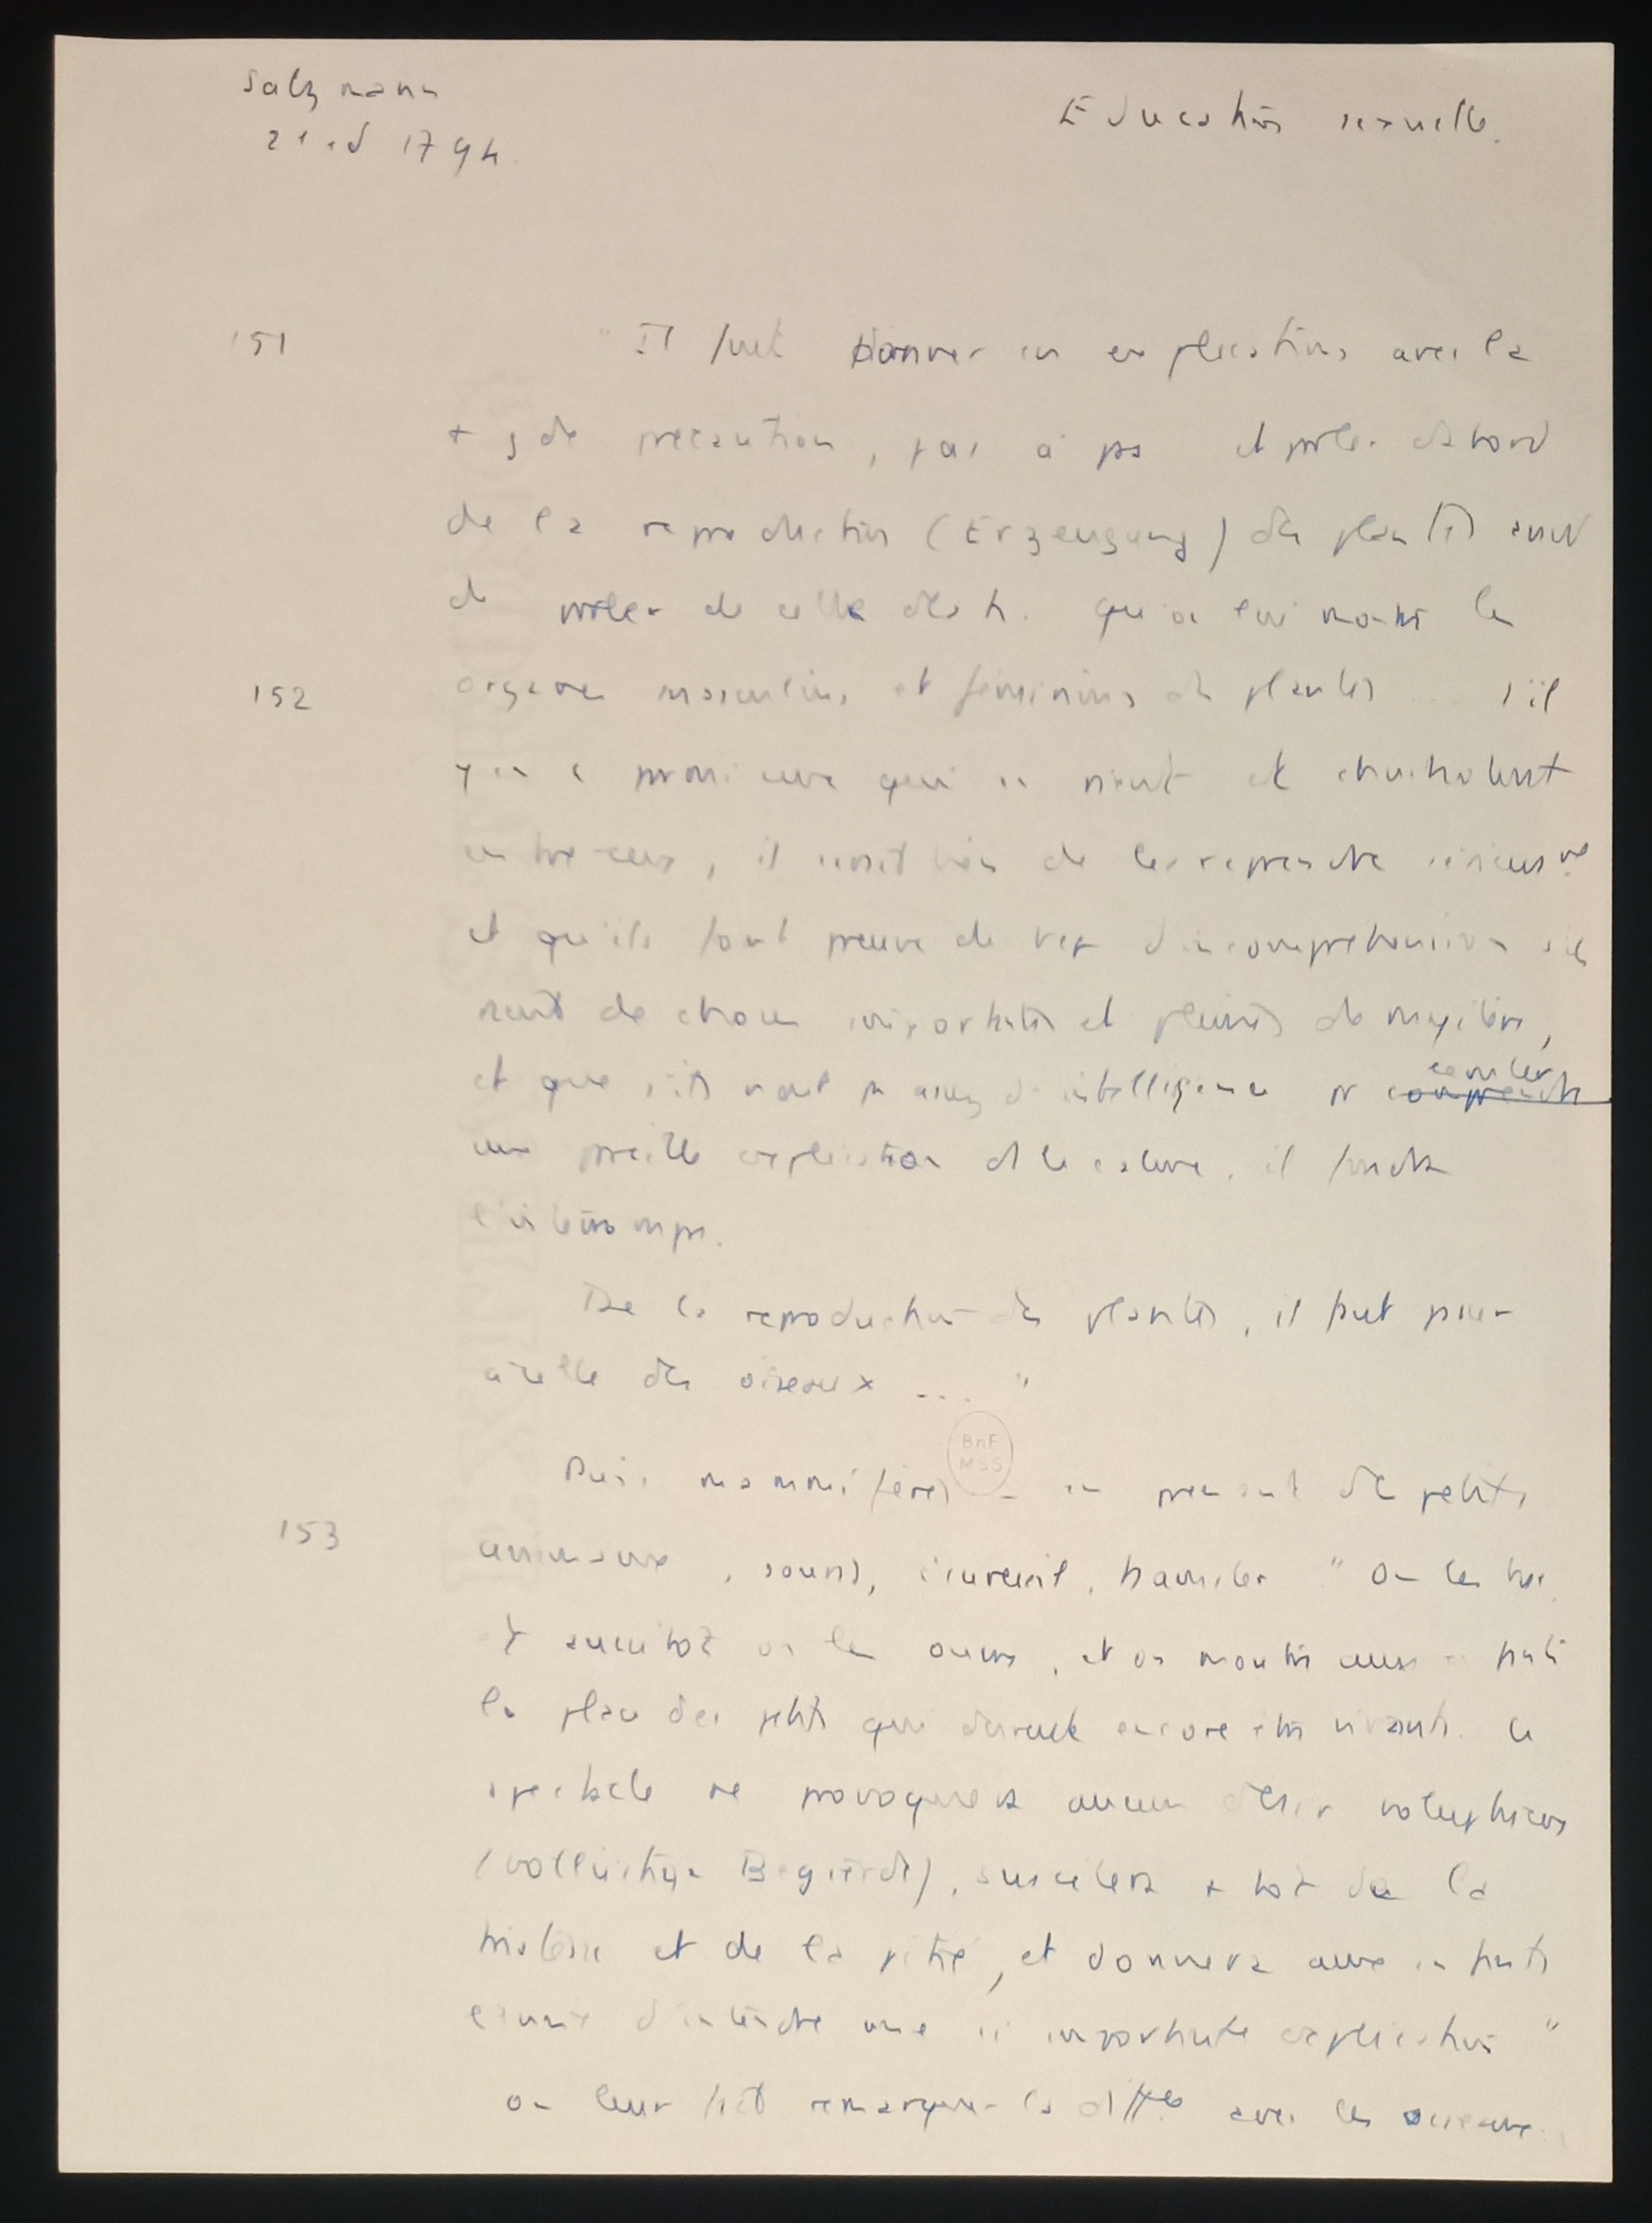 Salzmann
2e ed 1794
Education sexuelle.
151 "Il faut donner ces explications avec la
+ gde precaution, pas à pas et parler d'abord
de la reproduction (Erzeugung) des plantes avt
de parler de celle des h. qu'on leur montre les
152 organes masculins et féminins des plantes ... s'il
y en a parmi eux qui en rient et chuchotent
entre eux, il serait bien de les reprendre sérieusemt
et qu'ils font preuve de bcp d'incompréhension s'ils
rient de choses importantes et pleines de mystères,
et que s'ils n'ont pas assez d'intelligence pr comprendre écouter
une pareille explication ds le calme, il faudra
l'interrompre.
De la reproduction des plantes, il faut passer
à celle des oiseaux ... "
BnF
MSS
Puis mammifères – en prenant des petits
153 animaux, souris, écureuil, hamster " On les tue.
Et aussitôt on les ouvre, et on montre aux enfants
la place des petits qui doivent encore être vivants. Ce
spectacle ne provoquera aucun désir voluptueux
(wollüstige Begierde), suscitera + tôt de la
tristesse et de la pitié, et donnera aux enfants
envie d'entendre une si importante explication "
On leur fait remarquer la diffce avec les oiseaux.